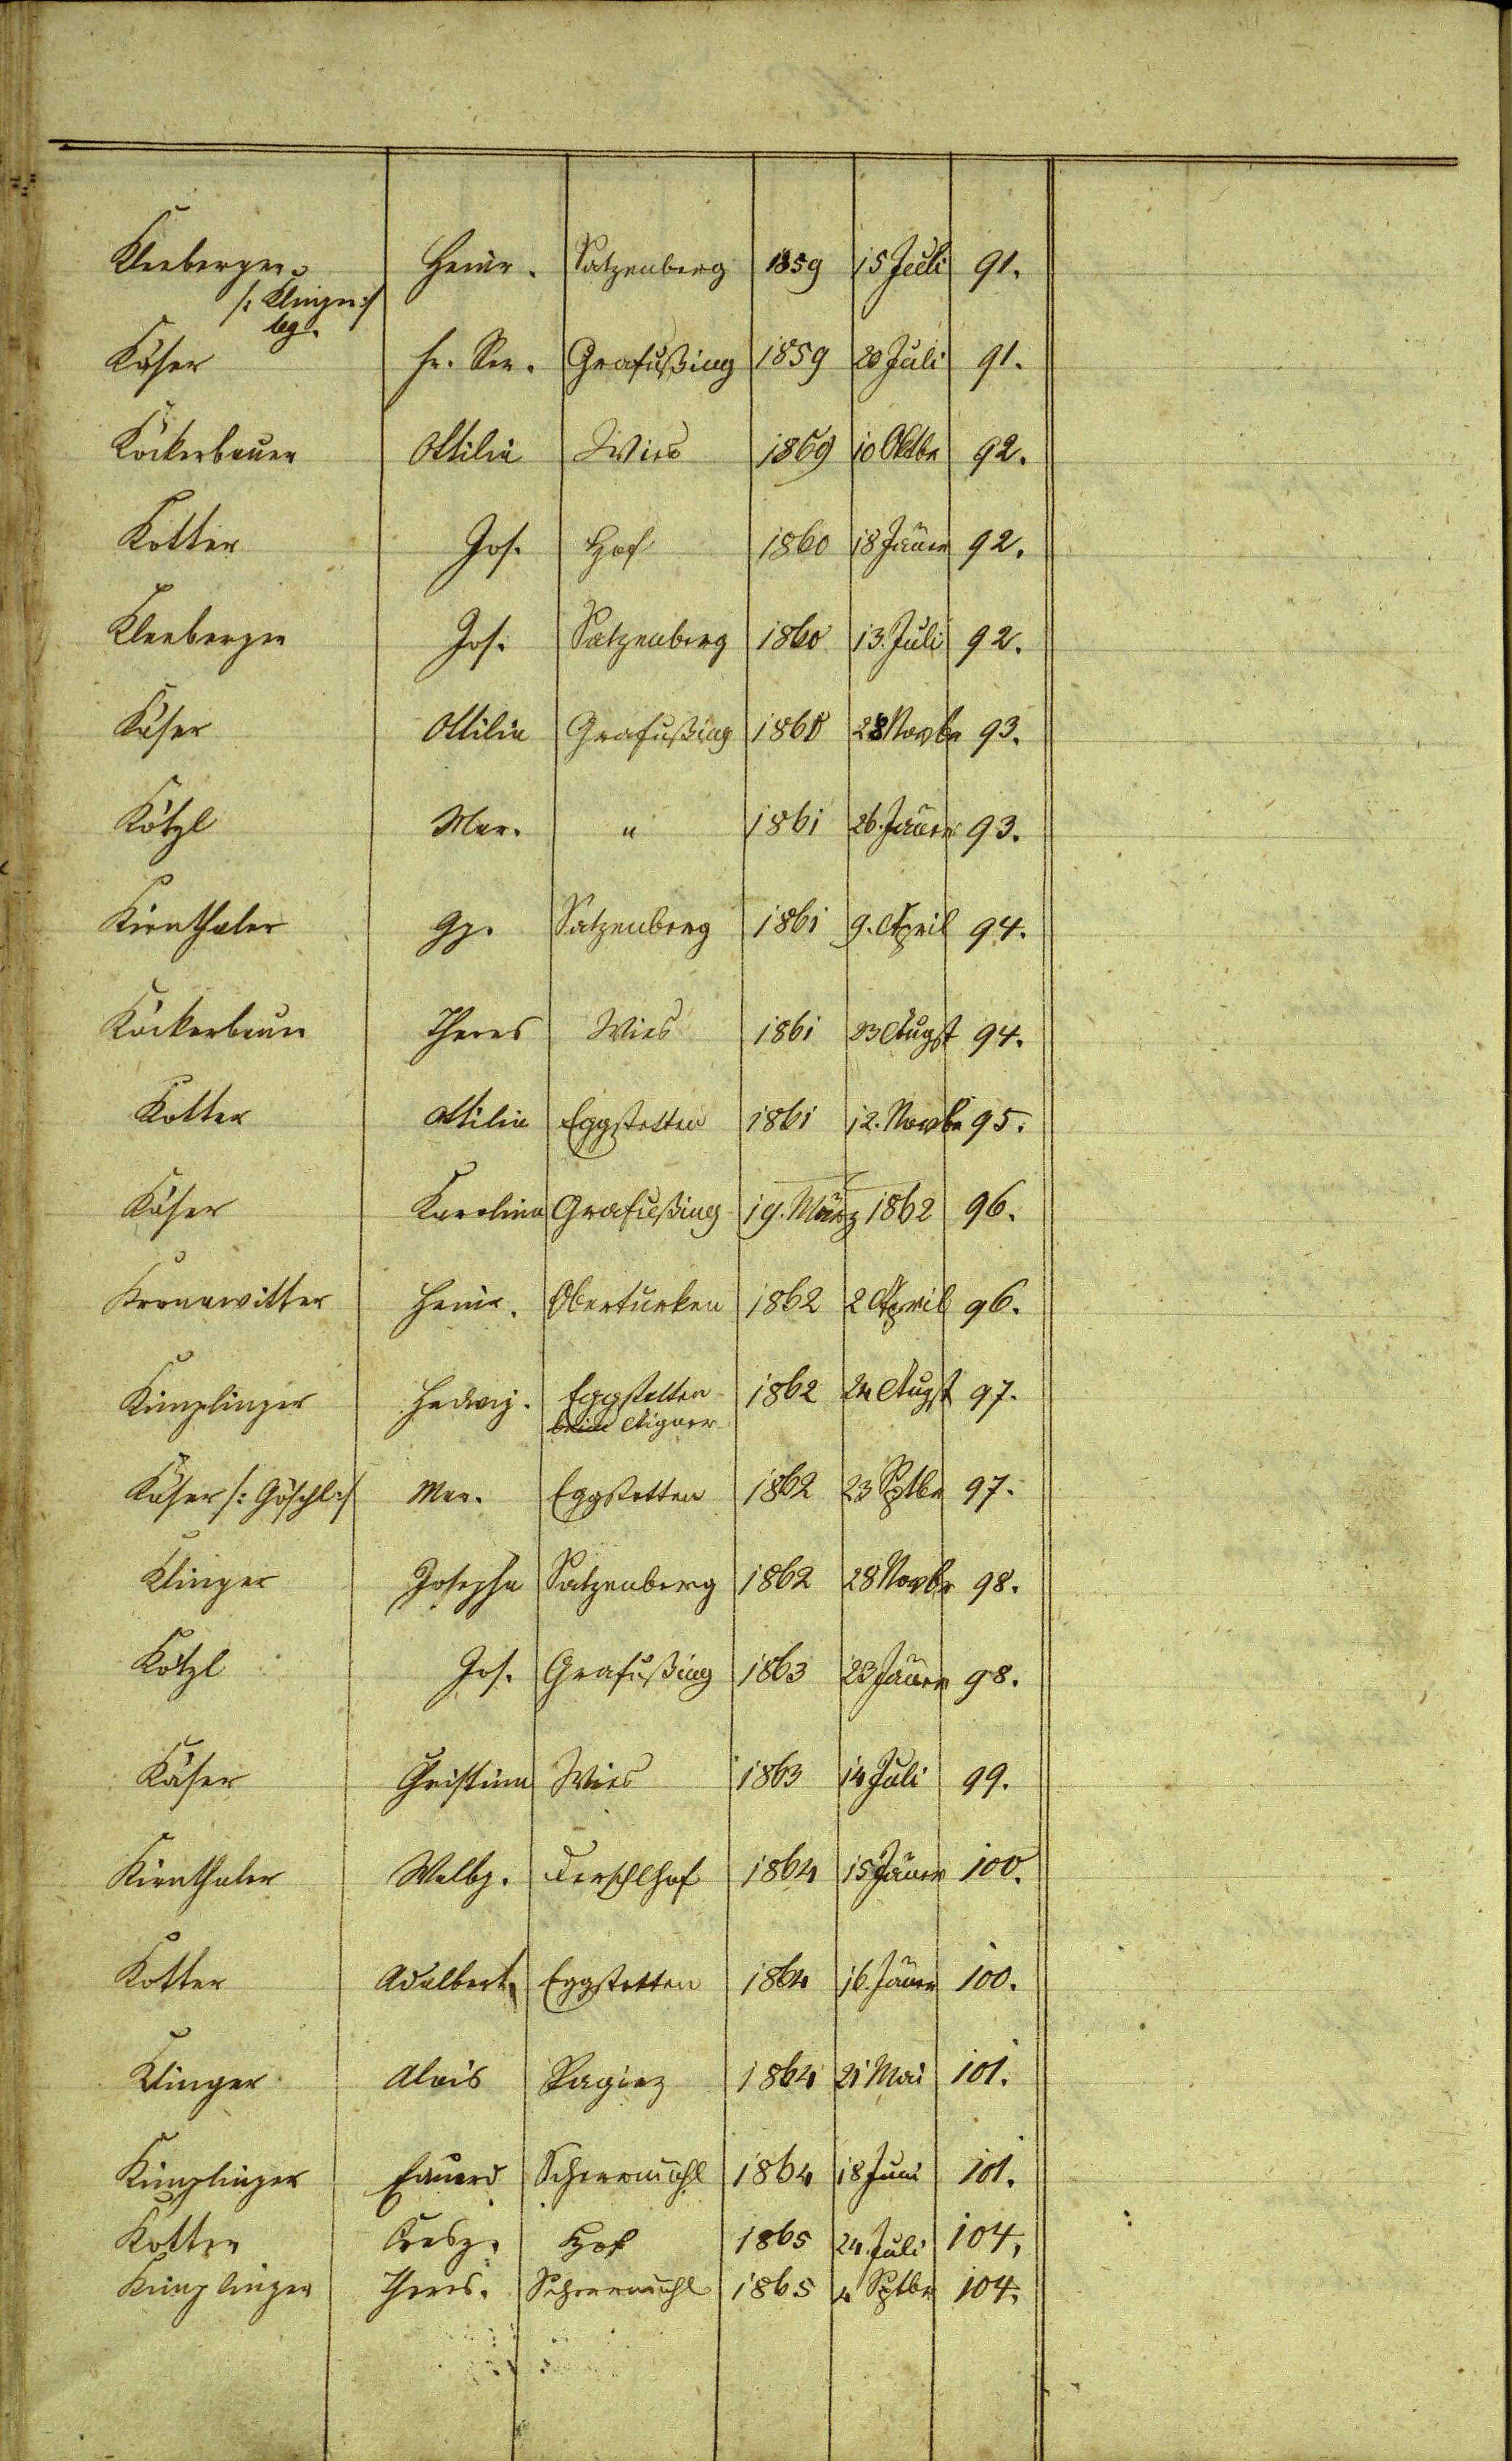 Kleeberger Heinr. Satzenberg 1859 15 Juli 91.
/: Klinger :/
leg.
Käser Fr. Ser. Grafußing 1859 20 Juli 91.
Köckerbauer Ottilia Wies 1869 10 Oktbr 92.
Kotter Jos. Hof 1860 18 Jäner 92.
Kleeberger Jos. Satzenberg 1860 13. Juli 92.
Käser Ottilia Grafußing 1860 28 Novbr 93.
Kötzl Mar. " 1861 26. Jäner 93.
Kirnthaler Gg. Satzenberg 1861 9. April 94.
Köckerbauer Theres Wies 1861 23 Augst 94.
Kotter Ottilia Eggstetten 1861 12. Novbr 95.
Käser Karolina Grafußing 19. März 1862 96.
Kronawitter Heinr. Oberturken 1862 2 April 96.
Kimplinger Hedwig. Eggstetten 1862 24 Augst 97.
beim Aigner
Käser /: Göschl :/ Mar. Eggstetten 1862 23 Sptbr 97.
Klinger Josepha Satzenberg 1862 28 Novbr 98.
Kötzl Jos. Grafußing 1863 23 Jäner 98.
Käser Christina Wies 1863 14 Juli 99.
Kirnthaler Walbg. 1864 15 Jäner 100.
Kotter Adalbert Eggstetten 1864 16. Jäner 100.
Klinger Alois 1864 21 Mai 101.
Kimplinger Eduard Schermühl 1864 18 Juni 101.
Kotter Cresz. Hof 1865 24. Juli 104.
Kimplinger Theres. Schermühl 1865 4 Sptbr 104.